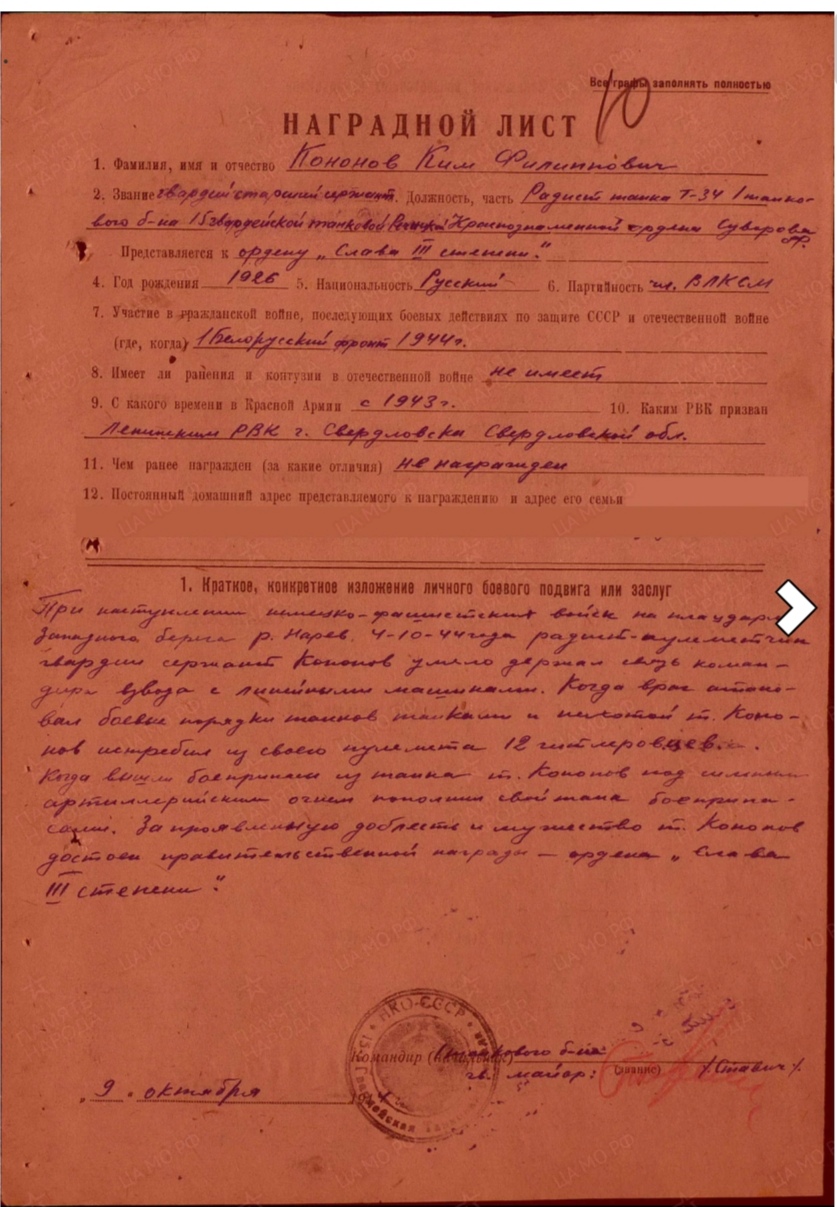 Все графы заполнять полностью
10
НАГРАДНОЙ ЛИСТ
1. Фамилия, имя и отчество Кононов Ким Филиппович
2. Звание гвардии старший сержант. Должность, часть Радист танка Т-34 1 танко-
вого б-на 15 гвардейской танковой Речицкой Краснознаменной ордена Суворова
Представляется к ордену „Слава III степени."
4. Год рождения 1926 5. Национальность Русский 6. Партийность чл. ВЛКСМ
7. Участие в гражданской войне, последующих боевых действиях по защите СССР и отечественной войне
(где, когда) 1 Белорусский фронт 1944г.
8. Имеет ли ранения и контузии в отечественной войне не имеет
9. С какого времени в Красной Армии с 1943г. 10. Каким РВК призван
Ленинским РВК г. Свердловска Свердловской обл.
11. Чем ранее награжден (за какие отличия) не награжден
12. Постоянный домашний адрес представляемого к награждению и адрес его семьи
1. Краткое, конкретное изложение личного боевого подвига или заслуг
При наступлении немецко-фашистских войск на плацдарм
западного берега р. Нарев 4-10-44 года радист-пулеметчик
гвардии сержант Кононов умело держал связь коман-
дира взвода с линейными машинами. Когда враг атако-
вал боевые порядки танков танками и пехотой т. Коно-
нов истребил из своего пулемета 12 гитлеровцев.
Когда вышли боеприпасы из танка т. Кононов под сильным
артиллерийским огнем пополнил свой танк боеприпа-
сами. За проявленную доблесть и мужество т. Кононов
достоин правительственной награды – ордена „Слава
III степени".
НКО-СССР
Командир (начальник) танкового б-на
гв. майор: (звание) /Ставич/
„ 9 " октября 194